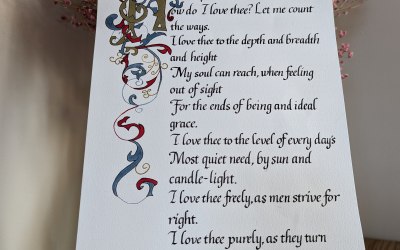 How do I love thee? Let me count
the ways.
I love thee to the depth and breadth
and height
My soul can reach, when feeling
out of sight
For the ends of being and ideal
grace.
I love thee to the level of every day's
Most quiet need, by sun and
candle-light.
I love thee freely, as men strive for
right.
I love thee purely, as they turn